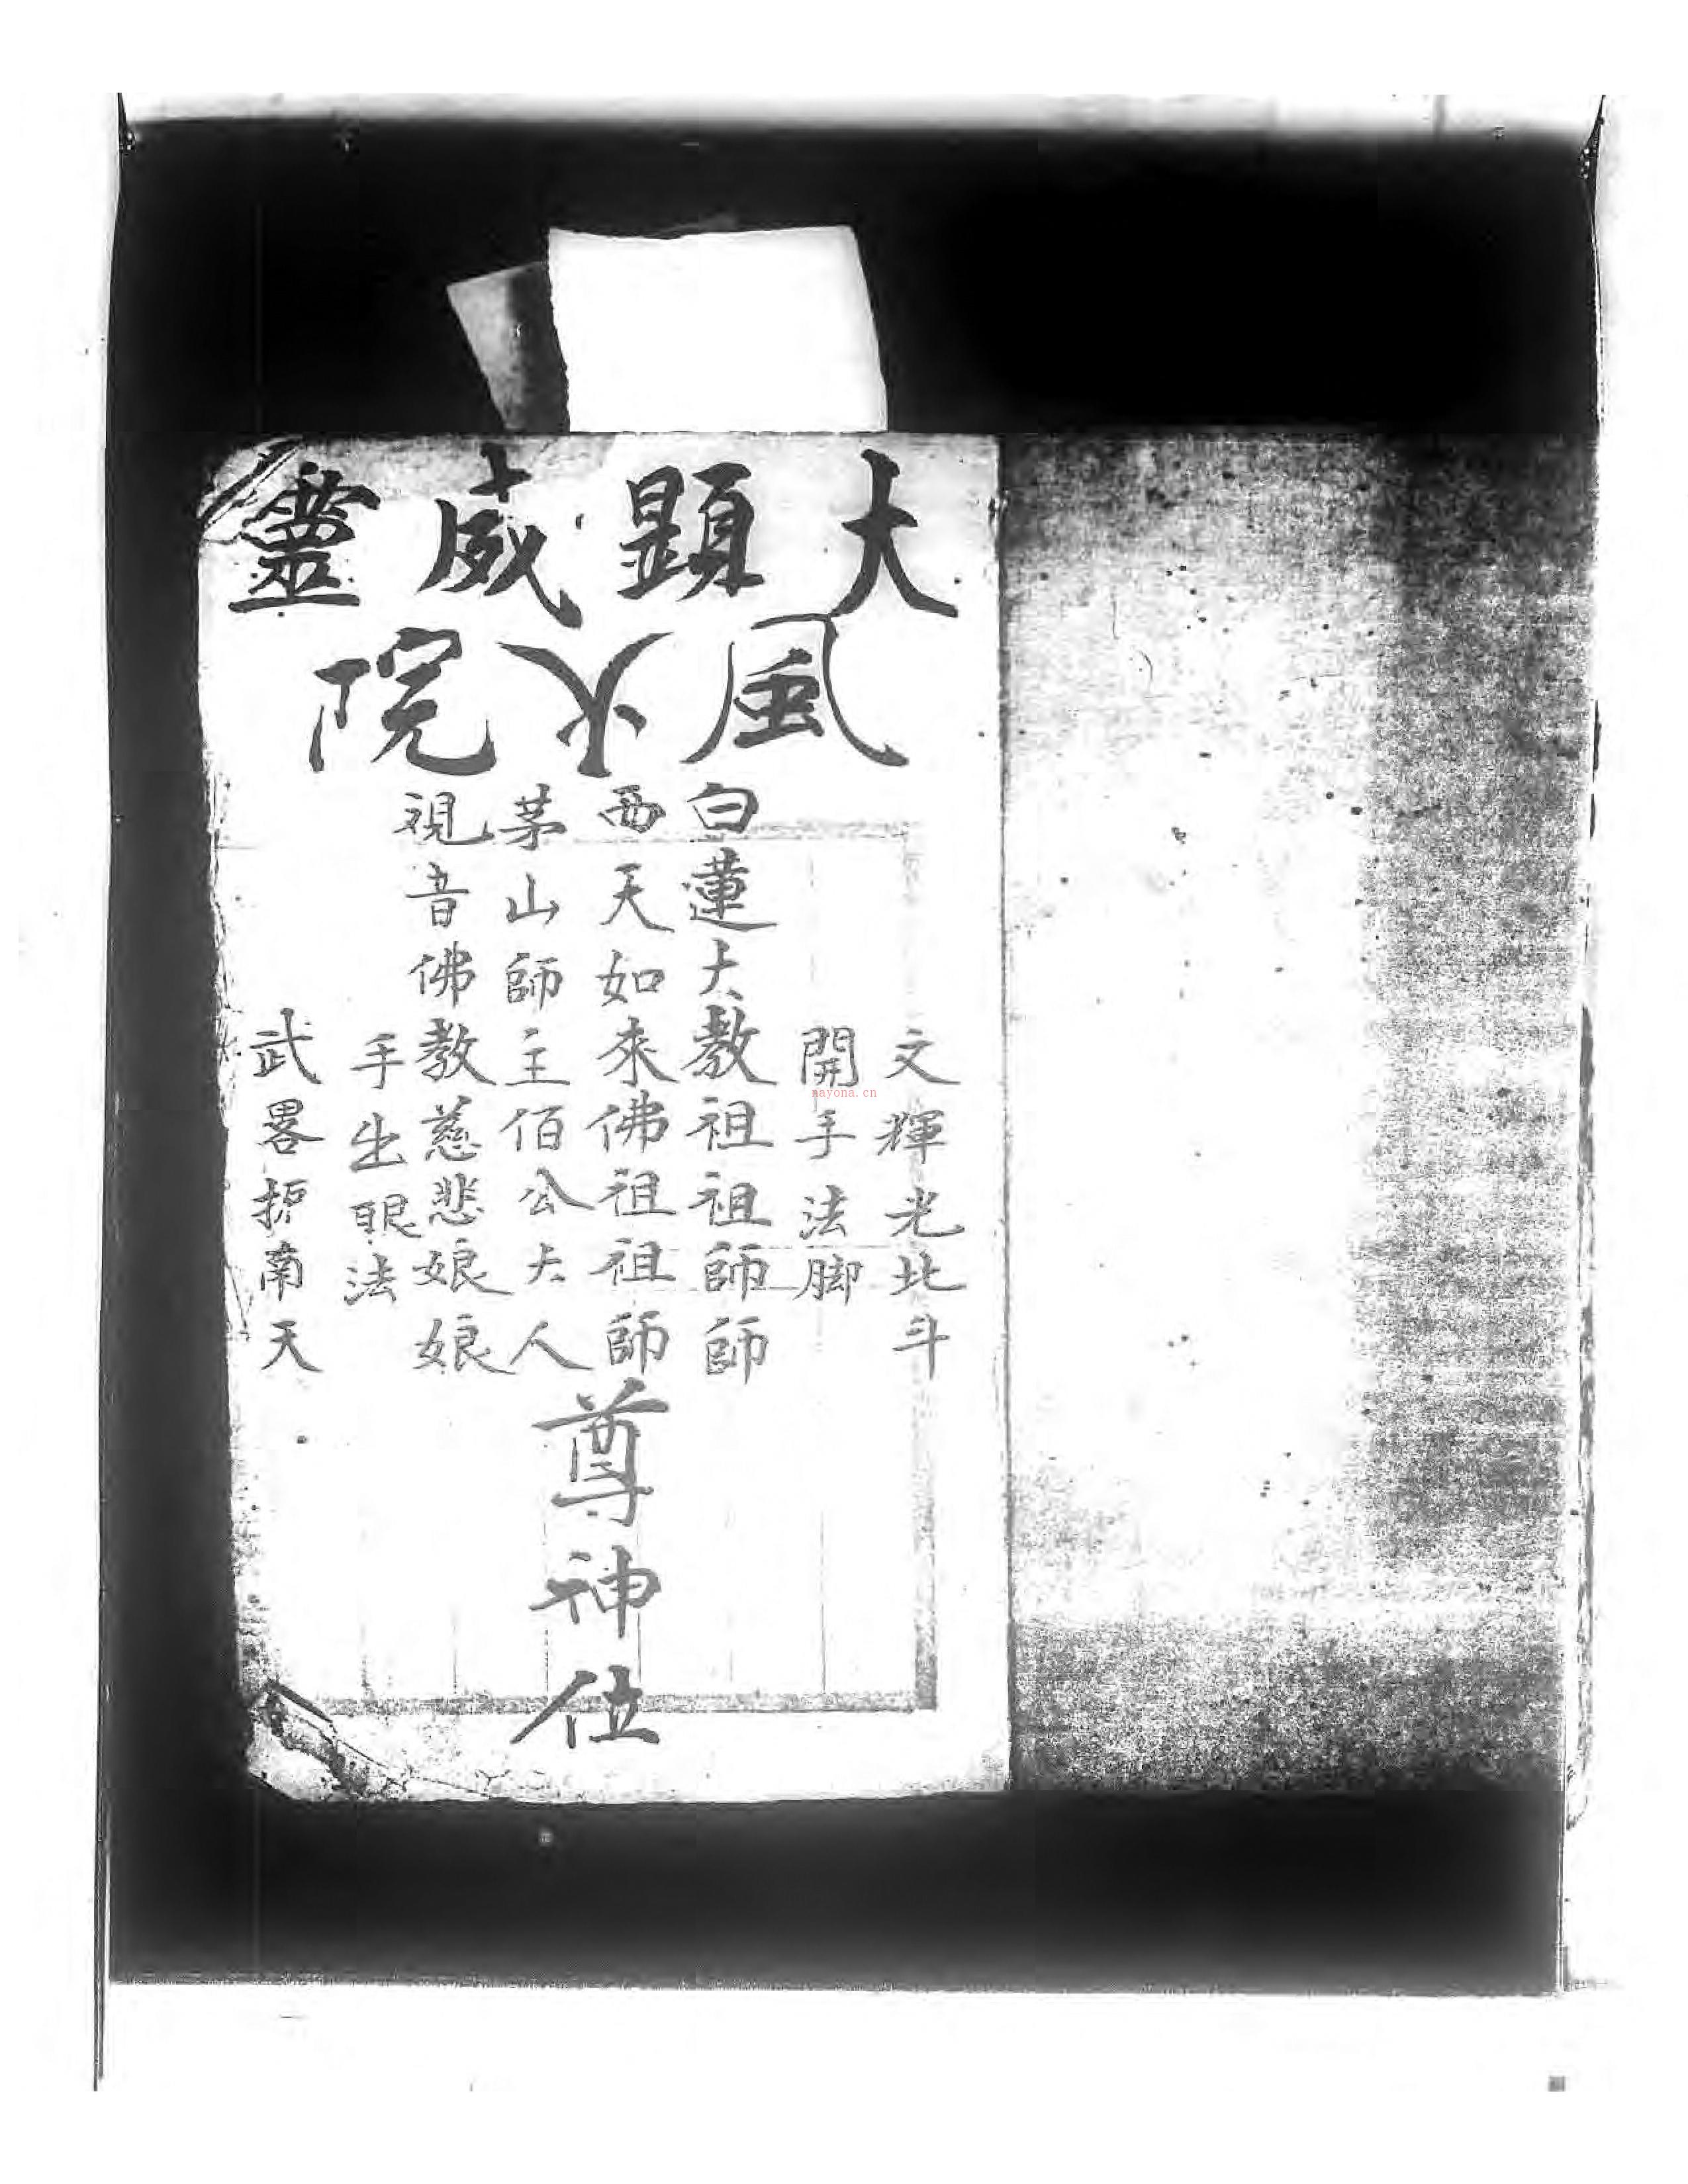 大顕威靈
風火院
文輝光北斗
開手法脚
白蓮大教祖祖師師
西天如來佛祖祖師
茅山師主佰公大人
視音佛教慈悲娘娘
手出眼法
武畧护南天
尊神位
nayona.cn